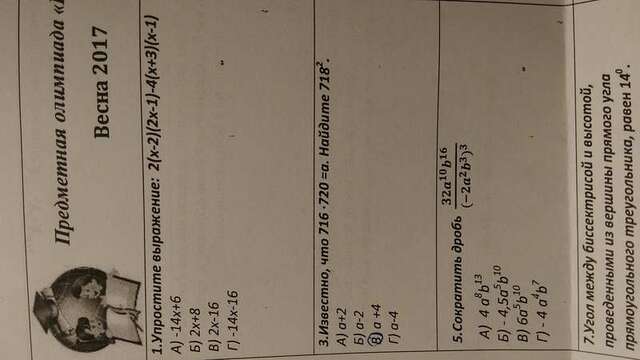 Предметная олимпиада «
Весна 2017
1.Упростите выражение: 2(x-2)(2x-1)-4(x+3)(x-1)
А) -14x+6
Б) 2x+8
В) 2x-16
Г) -14x-16
3.Известно, что 716 ·720 =a. Найдите 718².
А) a+2
Б) a-2
В) a +4
Г) a-4
5.Сократить дробь 32a¹⁰b¹⁶/(−2a²b³)³
А) 4 a⁸b¹³
Б) - 4,5a⁵b¹⁰
В) 6a⁵b¹⁰
Г) - 4 a⁴b⁷
7.Угол между биссектрисой и высотой,
проведенными из вершины прямого угла
прямоугольного треугольника, равен 14⁰.